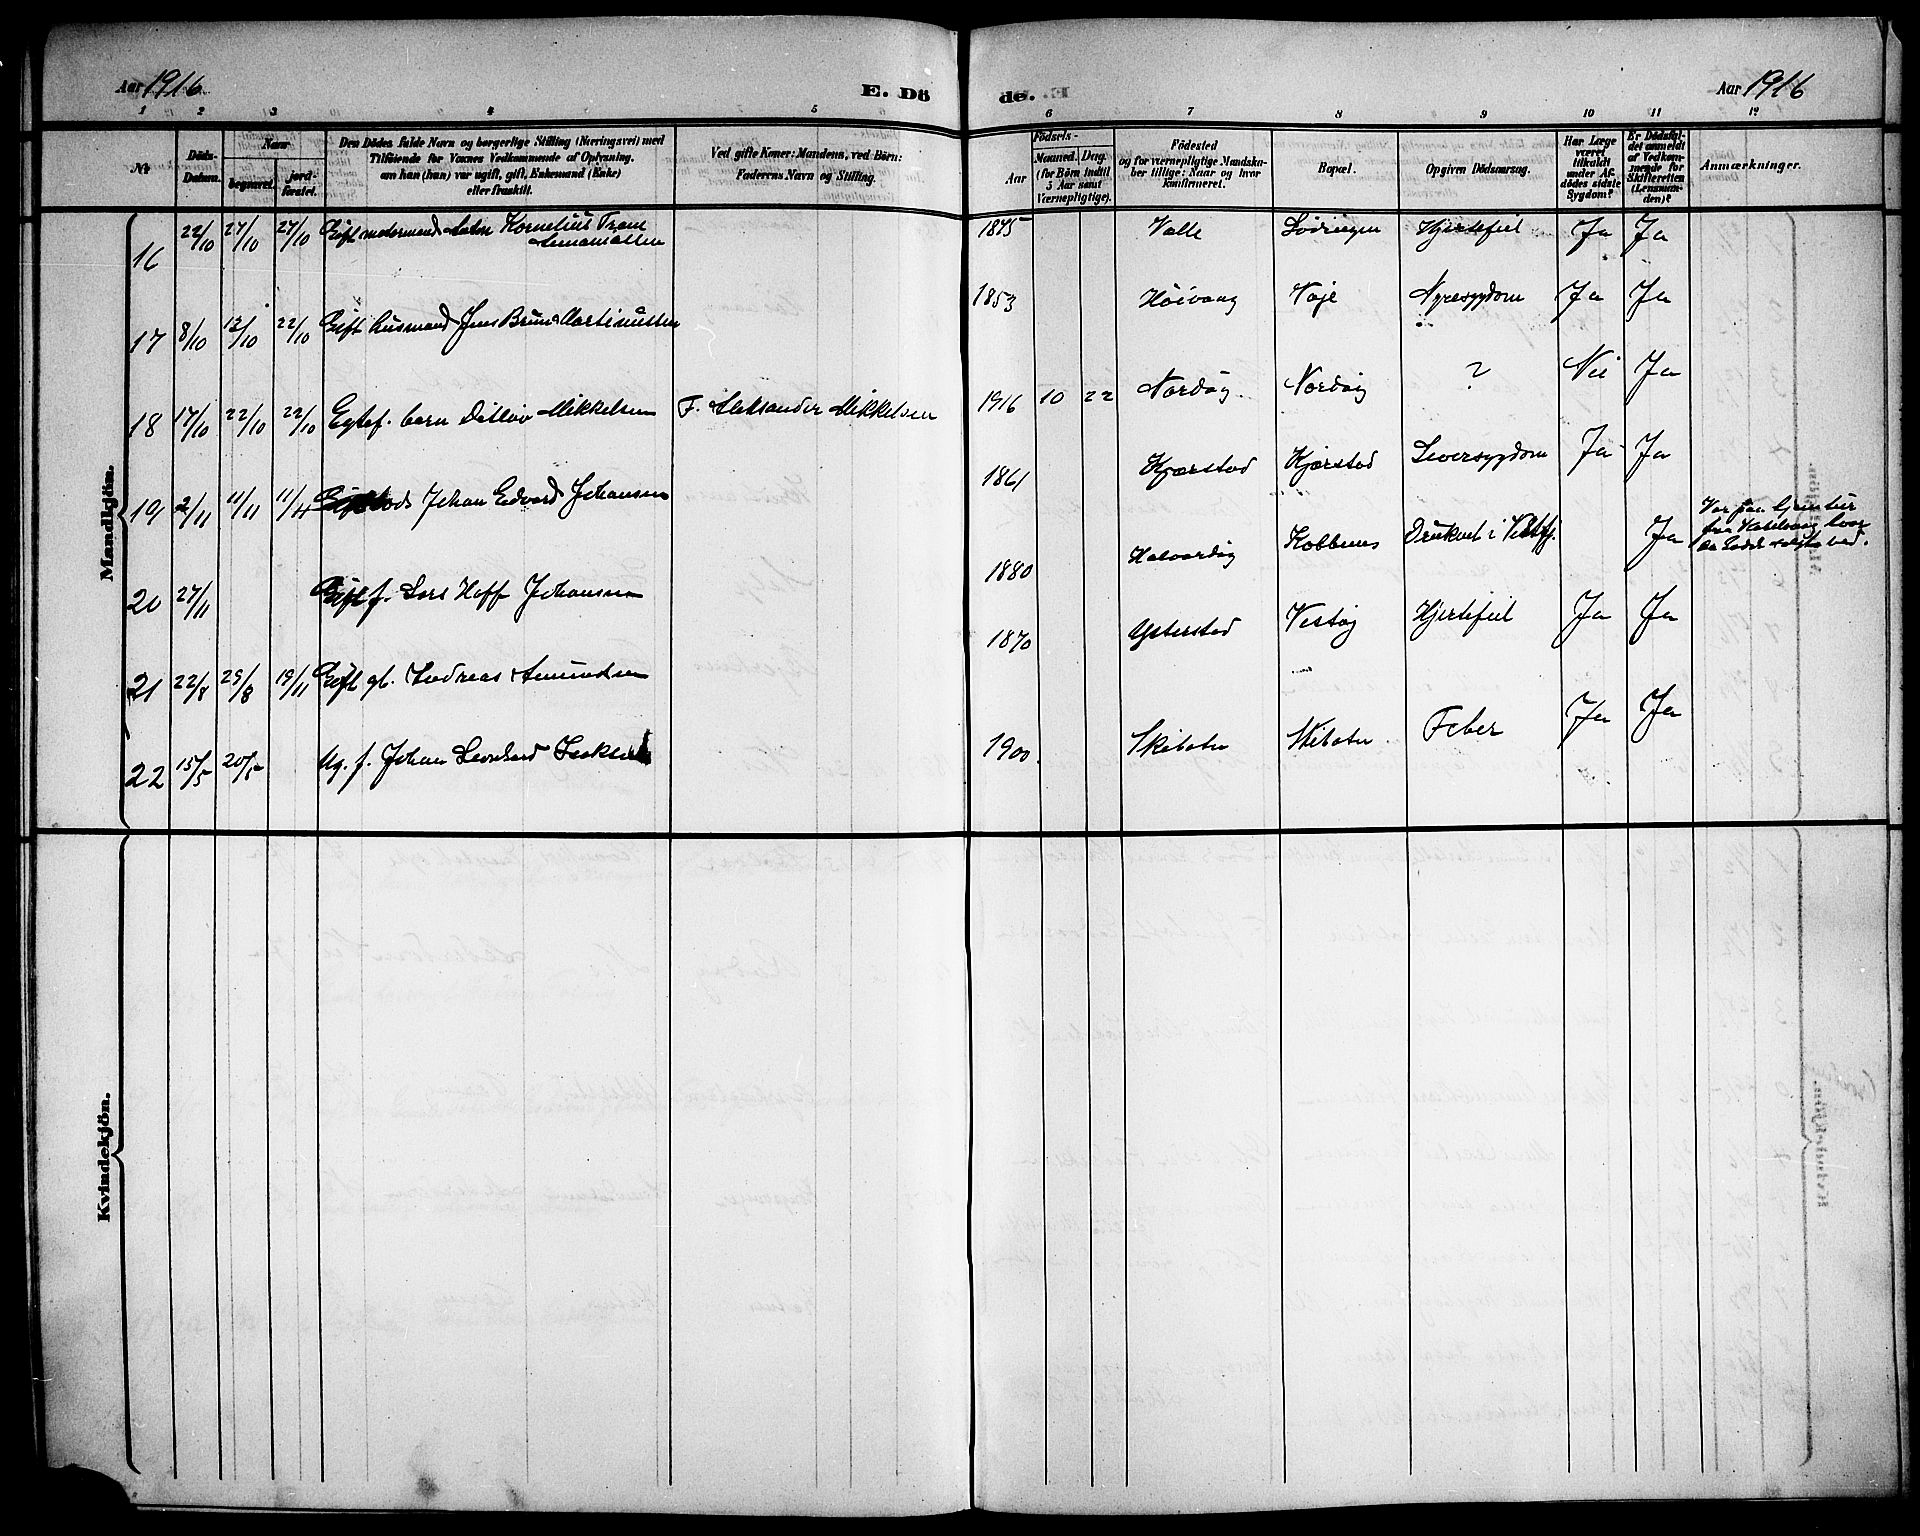 Aar 1916
E. Dö
de.
Aar 1916
1 2 3 4 5 6 7 8 9 10 11 12
№
Döds-
Datum.
Naar
begravet.
jord-
fæstet.
Den Dödes fulde Navn og borgerlige Stilling (Næringsvei) med
Tilföiende for Voxnes Vedkommende af Oplysning,
om han (hun) var ugift, gift, Enkemand (Enke)
eller fraskilt.
Ved gifte Koner: Mandens, ved Börn:
Faderens Navn og Stilling.
Födsels-
Aar
Maaned. Dag.
(for Börn indtil
5 Aar samt
Værnepligtige).
Födested
og for værnepligtige Mandskа-
ber tillige: Naar og hvor
konfirmeret.
Bopæl.
Opgiven Dödsaarsag.
Har Læge
været
tilkaldt
under Af-
dödes sidste
Sygdom?
Er Dödsfal-
det anmeldt
af Vedkom-
mende for
Skifteretten
(Lensman-
den)?
Anmærkninger.
Mandkjön.
16 22/10 27/10 27/10 Gift Kornelius 1875 Valle Lödingen Hjertefeil Ja Ja
17 8/10 13/10 22/10 Gift husmand Jens Brun Martinussen 1853 Höivaag Vaje Nyresygdom Ja Ja
18 17/10 22/10 22/10 Egtef. barn Ditlöv Mikkelsen F. Aleksander Mikkelsen 1916 10 22 Nordöig Nordöig ? Nei Ja
19 2/11 11/11 11/4 Johan Edvard Johansen 1861 Kjærstad Kjærstad Leversygdom Ja Ja
20 27/11 f. Lars Hoff Johansen 1880 Halvardöig Kobbenes Druknet i Vestfj. Ja Var paa
21 22/8 29/8 19/11 Gift gb. Andreas Amundsen 1870 Ytterstad Vestöig Hjertefeil Ja Ja
22 15/5 20/5 Ug. f. Johan Leonhard 1900 Skibotn Skibotn Feber Ja Ja
Kvindekjön.